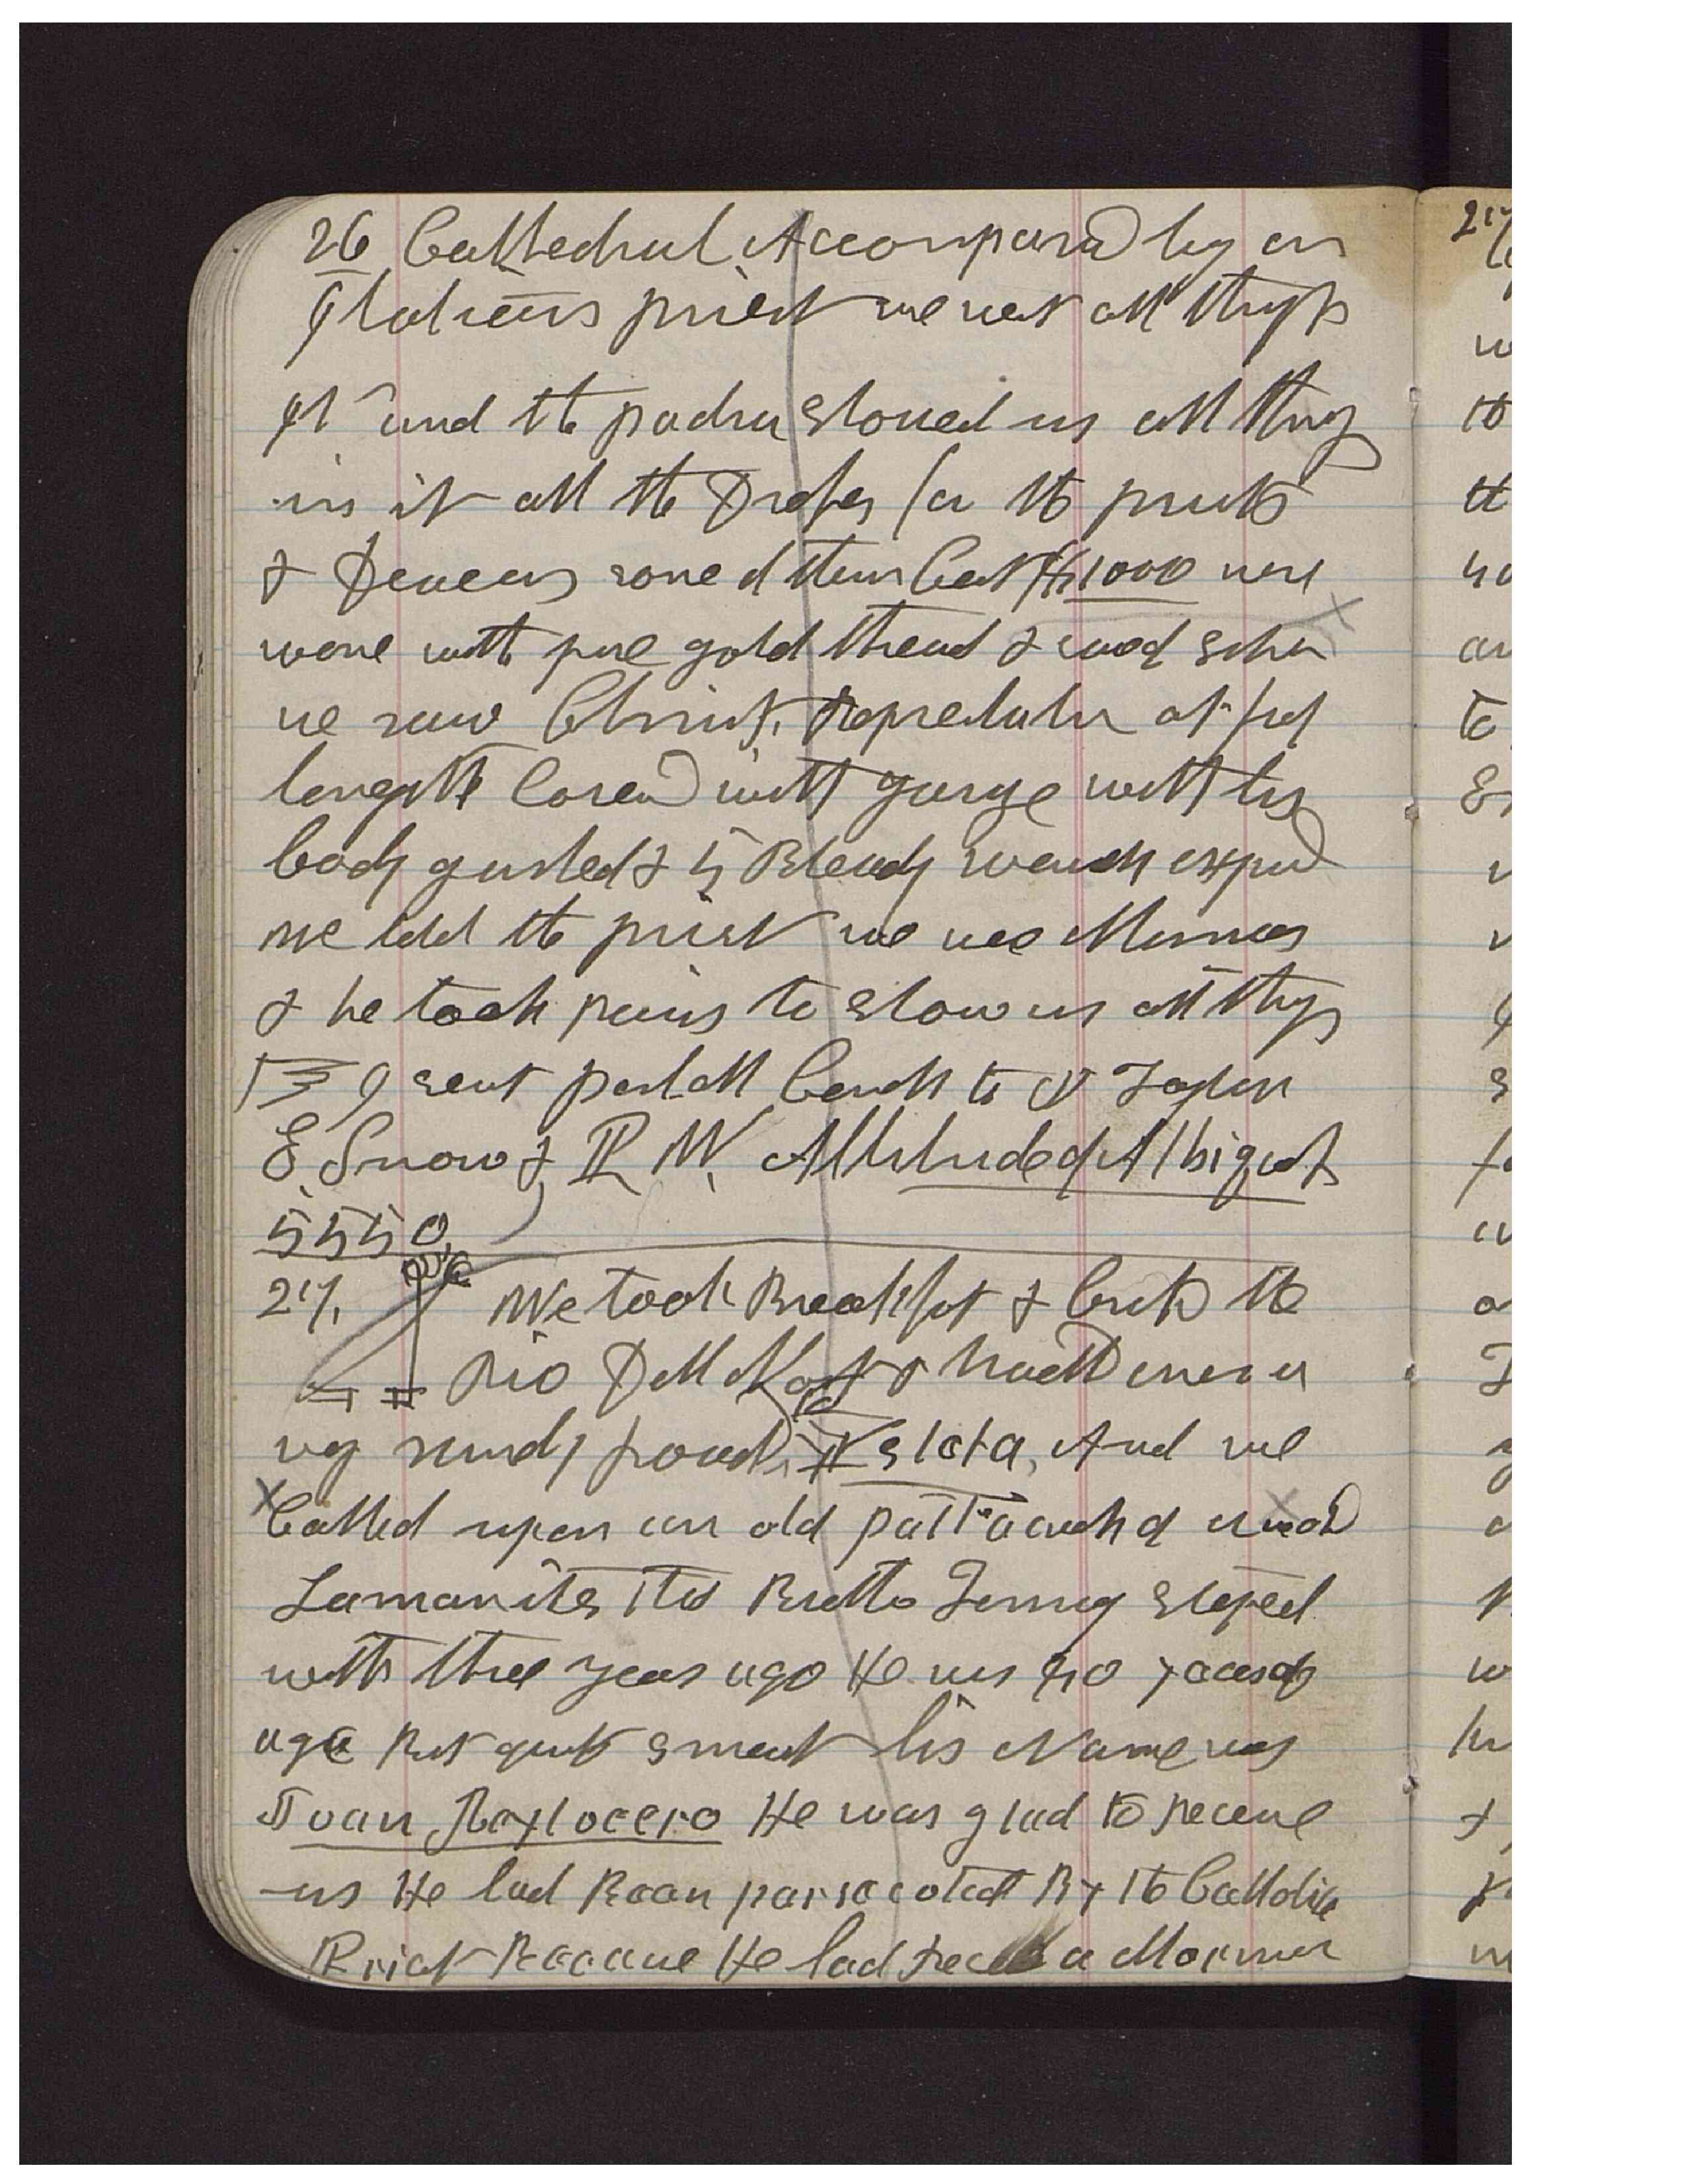 26 Cathedral Accompand by an
Italiens priest we went all through
it and the padra showed us all things
in it all the for the priests
& some of them Cost $1000 were
wove with pure gold thread & sword
we saw Christ, Represented at full
length Cored with gauze with his
body gashed & 5 Bleady wounds exposed
we told the priest we were Mormons
& he took pains to show us all things
I sent postall Cards to J Taylor
E. Snow & R W. Altitude of Albiqurk
5550
27, We took Breakfast & Crossd the
Rio Dell Nort & had to cross a
very sandy road, to Isleta, And we
Called upon an old pattaarch of
Lamanites that Brother Ieuney stoped
with three years ago He was 90 years of
age But quite smart his Name was
Juan Reylocero He was glad to receive
us He had Baan parsecoted By the Catholic
Priest Bacaue He had a Mormon